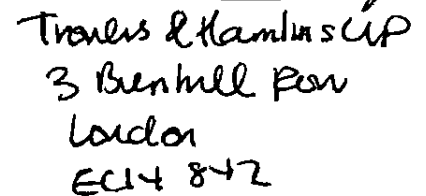 Trowers & Hamlins LLP
3 Bunhill Row
London
EC1Y 8YZ